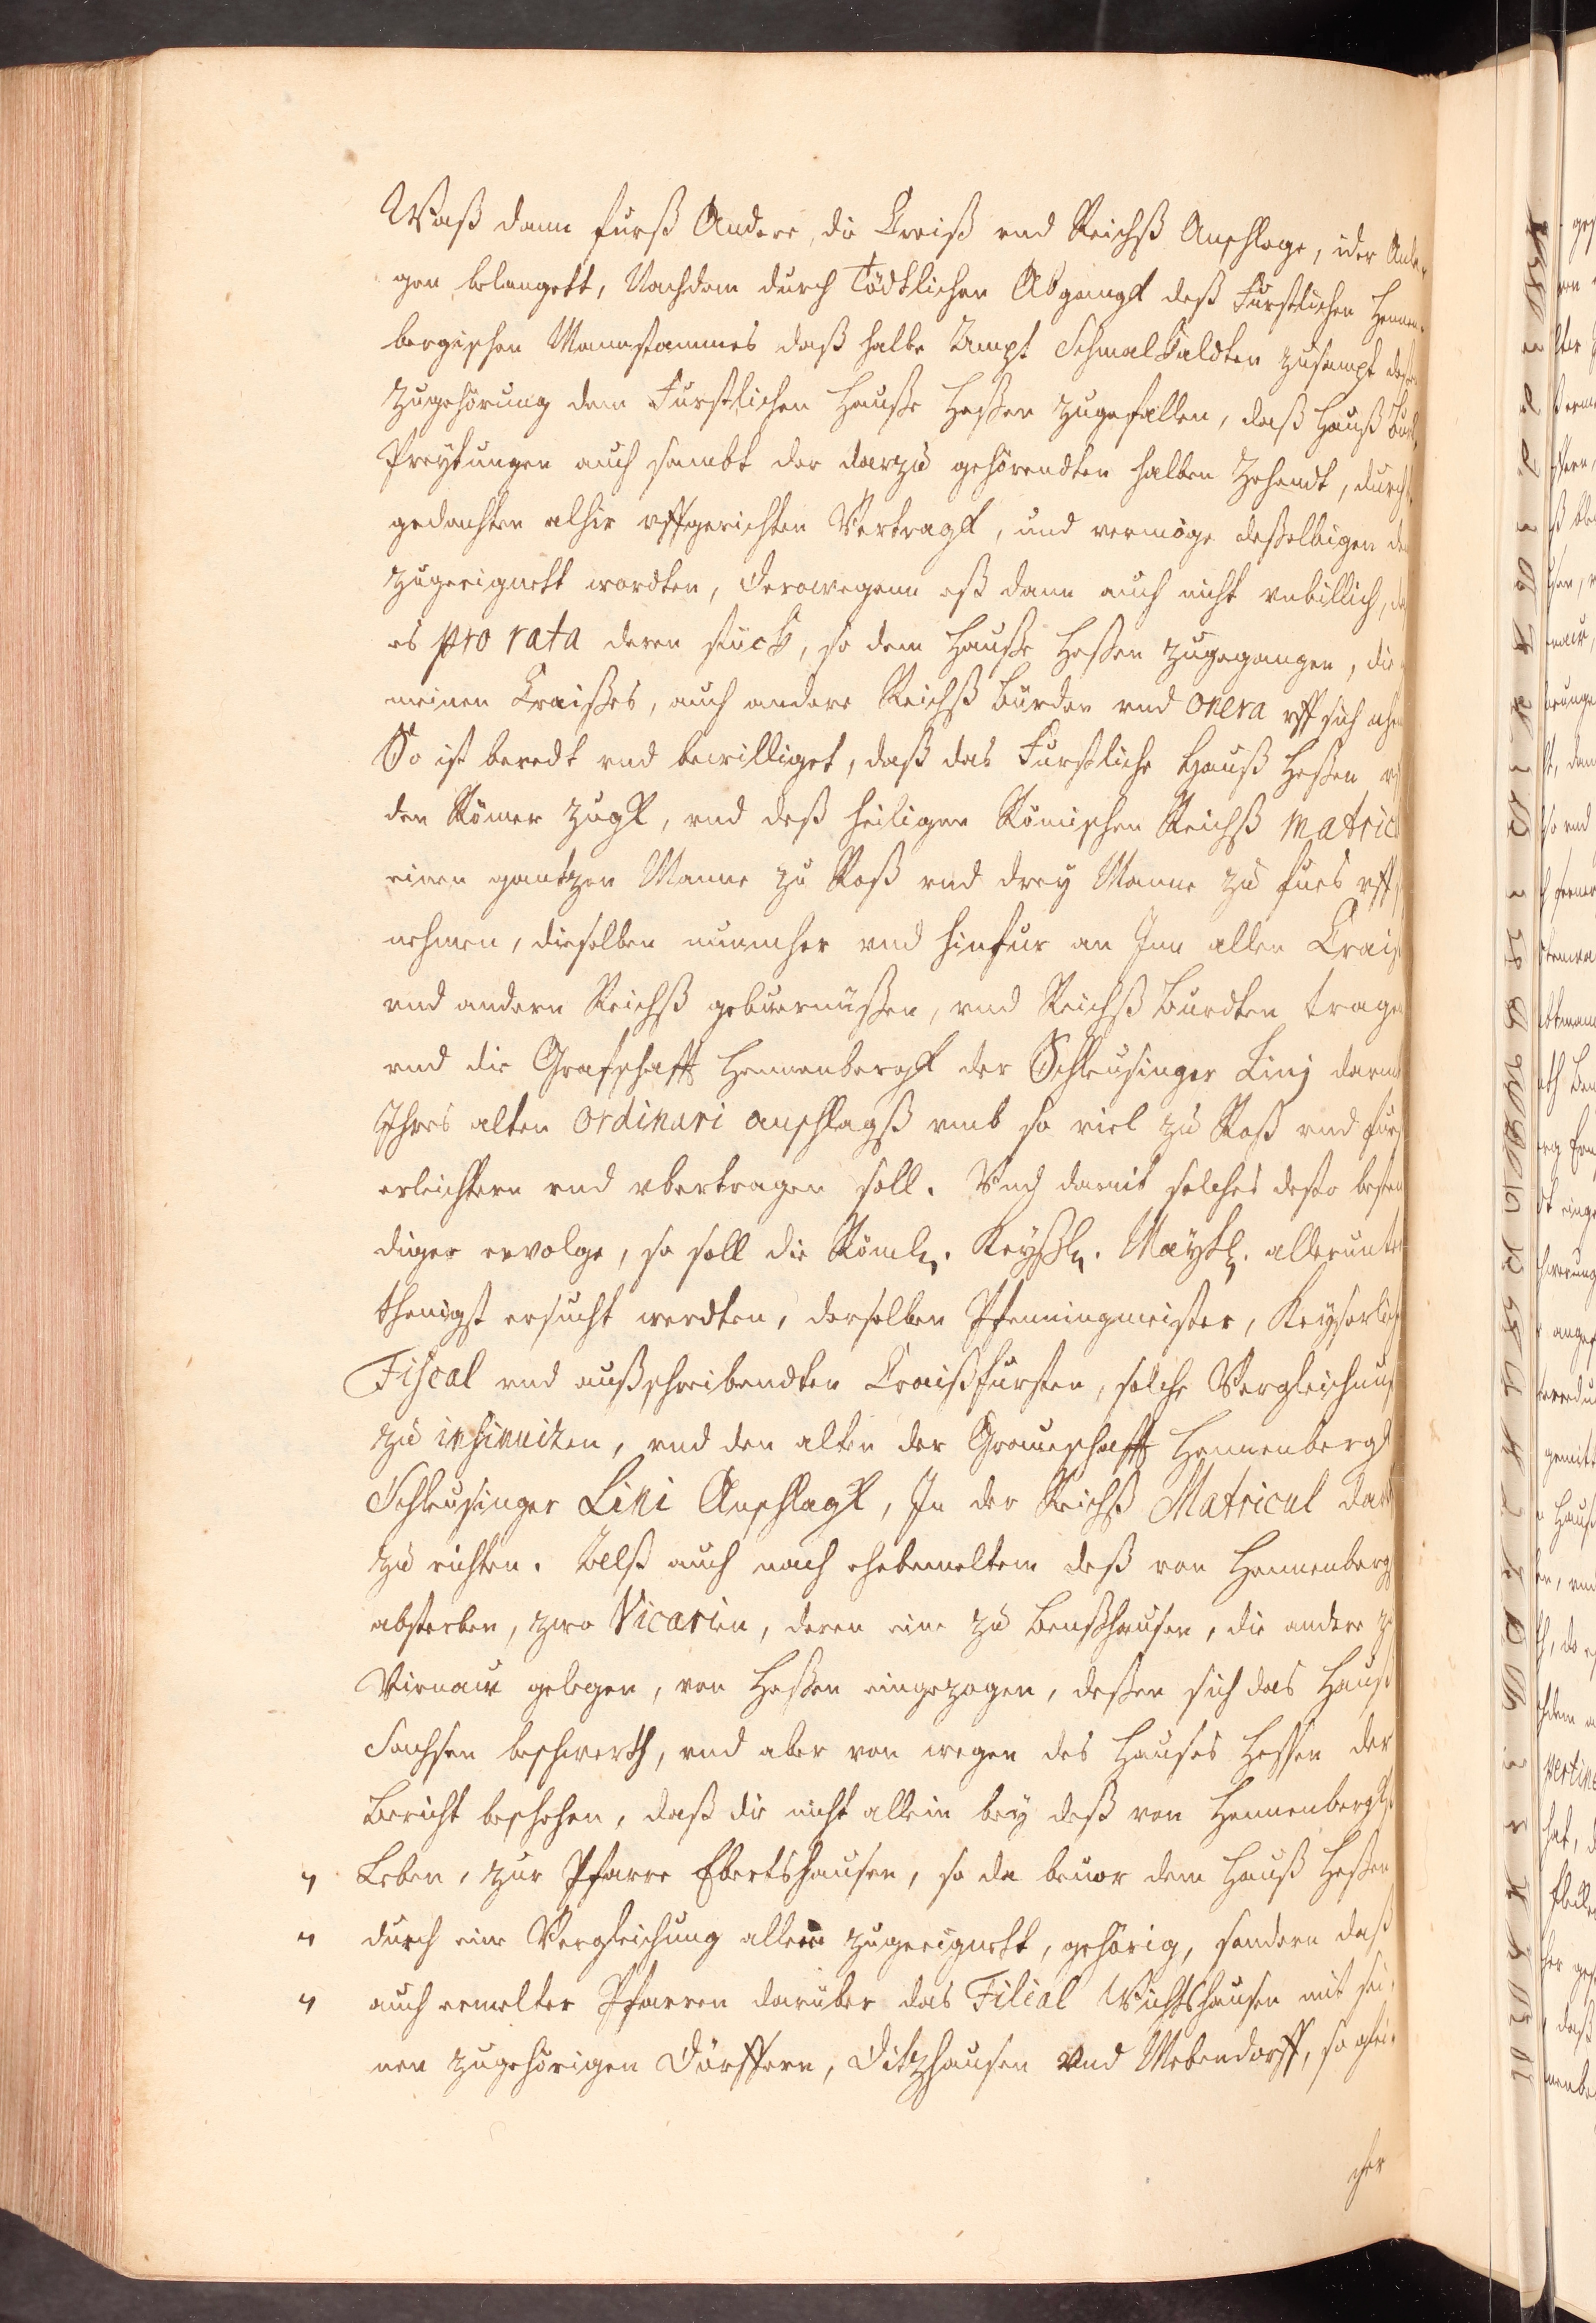 Waß dann furß Andere, die Creiß vnd Reichß Anschlage, oder
gen belangett, Nachdem durch Tödtlichen Abgangk deß Furstlichen Hennen-
bergischen Mannstammes daß halbe Ampt Schmalkaldten zusampt
Zugehörung dem Furstlichen Hauße Heßen zugefallen, daß Hauß
Preytungen auch sambt der darzu gehörendten halben Zehendt, durch
gedachten alhie vffgerichten Vertragk, und vermöge deßelbigen
zugeeignett wordten, Derowegenn eß dann auch nicht vnbillich,
es pro rata deren stück, so dem Hauße Heßen zugegangen, die
meinen Craißes, auch andere Reichß burden vnd onera vff sich
So ist beredt vnd bewilliget, daß das Furstliche Hauß Heßen
den Römer Zugk, vnd deß heiligen Römischen Reichß Matric
einen gantzen Manne zu Roß vnd drey Manne zu fues vff
nehmen, dieselben nunmher vnd hinfur an Inn allen Craiß
vnd andern Reichß gebuernüßen, vnd Reichß Burdten tragen
vnd die Grafschafft Hennenbergk der Schleusinger Linj
Ihres alten ordinari anschlagß vmb so viel zu Roß vnd fuß
erleichtern vnd vbertragen soll. Vnd damit solches desto besten
diger ervolge, so soll die Röml. Keyßl. Maytt. allerunter
thenigst ersucht werdten, derselben Pfenningmeister, Keyserlich
Fiscal vnd außschreibendten Craißfursten, solche Vergleichung
zu insinuiren, vnd den alten der Graueschafft Hennenbergk
Schleusinger Lini Anschlagk, In der Reichß Matricul
zu richten. Alß auch nach ehebemeltem deß von Hennenbergk
absterben, zwo Vicarien, deren eine zu Benßhausen, die andere zu
Viernaw gelegen, von Heßen eingezogen, deßen sich das Hauß
Sachsen beschwerth, vnd aber von wegen des Hauses Hessen der
Bericht beschehen, daß die nicht allein bey deß von Hennenbergk
Leben, zur Pfarre Ebertshausen, so da beuor dem Hauß Heßen
durch eine Vergleichung allein zugeeignett, gehörig, sondern daß
auch ermelter Pfarren daruber das Filial Wichtshausen mit sei-
nen zugehörigen Dörffern, Ditzhausen vnd Mebendorff, so glei-
cher